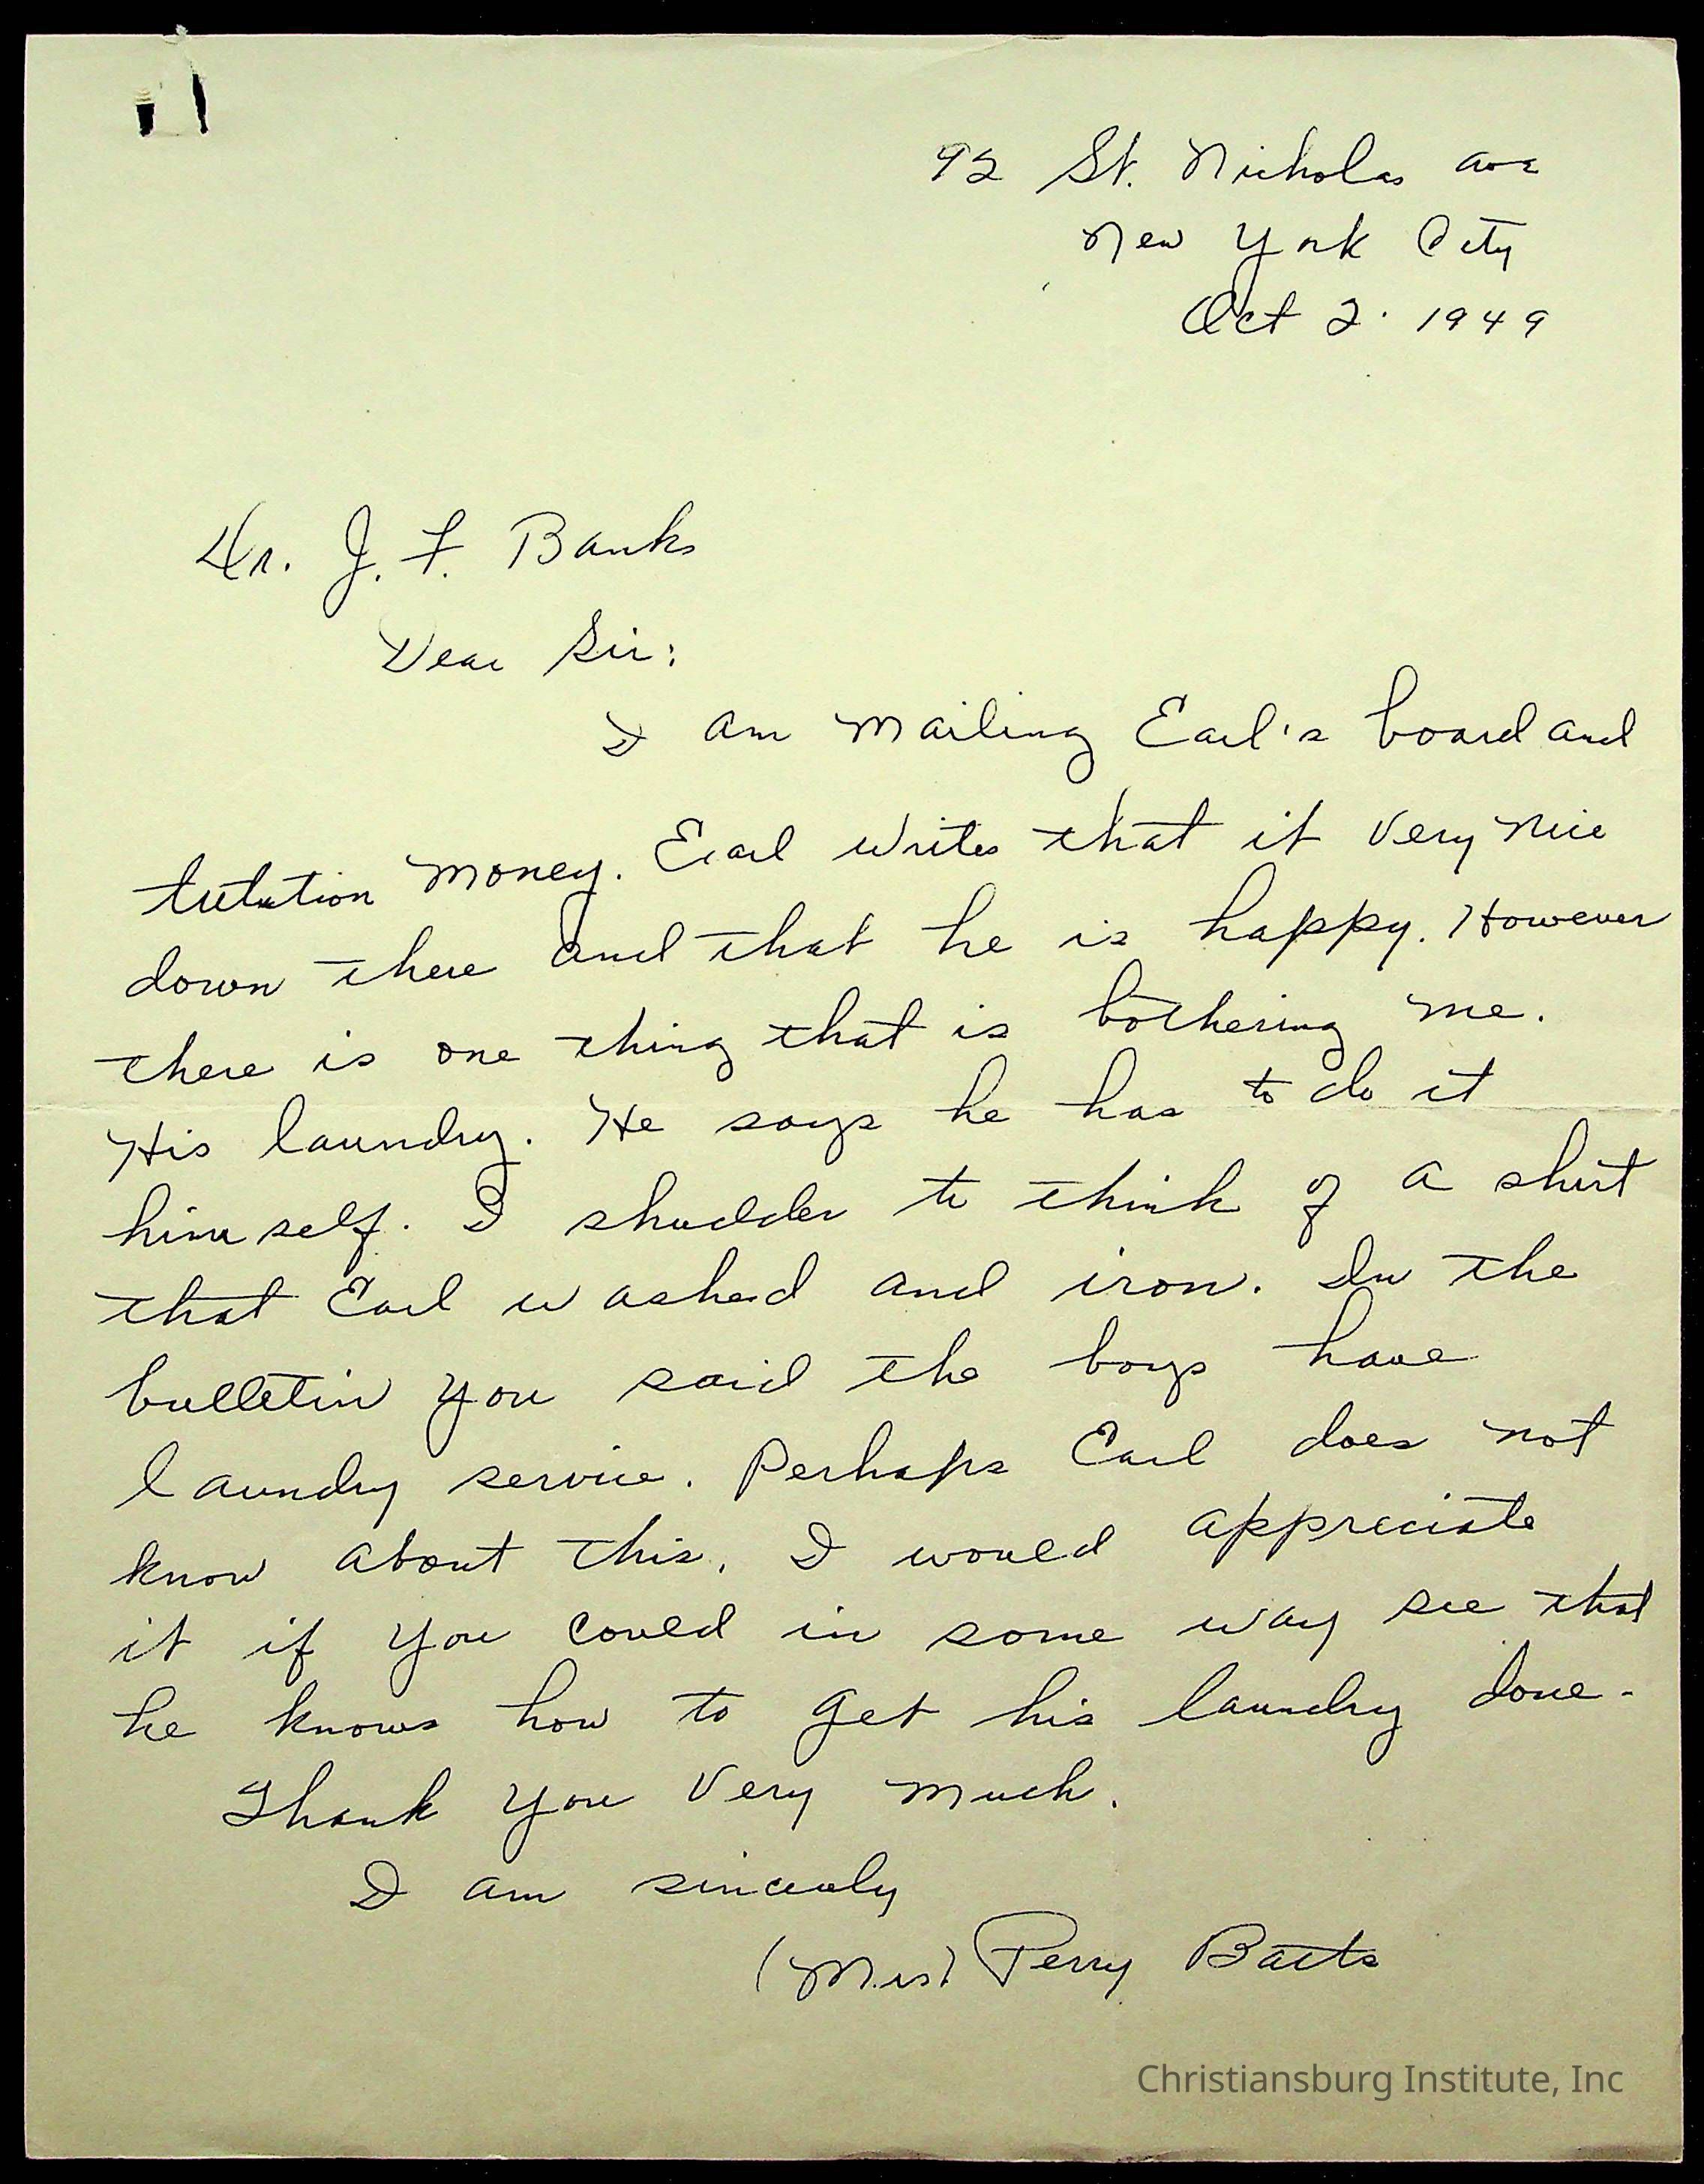 92 St. Nicholas Ave
New York City
Oct 2. 1949
Dr. J. F. Banks
Dear Sir:
I am mailing Earl's board and
tutution money. Earl writes that it very nice
down there and that he is happy. However
there is one thing that is bothering me.
His laundry. He says he has to do it
himself. I shudder to think of a shirt
that Earl washed and iron. In the
bulletin you said the boys have
laundry service. Perhaps Earl does not
know about this. I would appreciate
it if you could in some way see that
he knows how to get his laundry done.
Thank you very much.
I am sincerely
(Mrs) Perry Batts
Christiansburg Institute, Inc